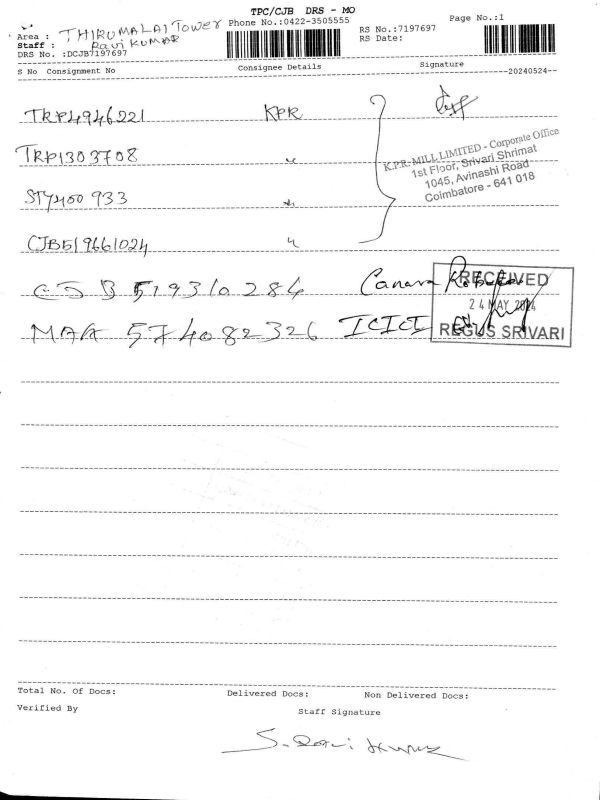 TPC/CJB DRS - MO
Area : THIRUMALAI TOWER Phone No.:0422-3505555 Page No.:1
Staff : Ravi KUMAR RS No.:7197697
DRS No. :DCJB7197697 RS Date:
S No Consignment No Consignee Details Signature 20240524
TRP4946221 KPR
TRP1303708 "
STY400 933 "
CJB519661024 "
K.P.R. MILL LIMITED - Corporate Office
1st Floor, Srivari Shrimat
1045, Avinashi Road
Coimbatore - 641 018
CJB 519310284 Canara
MAA 574082326 ICICI
RECEIVED
24 MAY 2024
REGUS SRIVARI
Total No. Of Docs: Delivered Docs: Non Delivered Docs:
Verified By Staff Signature
S. Ravi Kumar